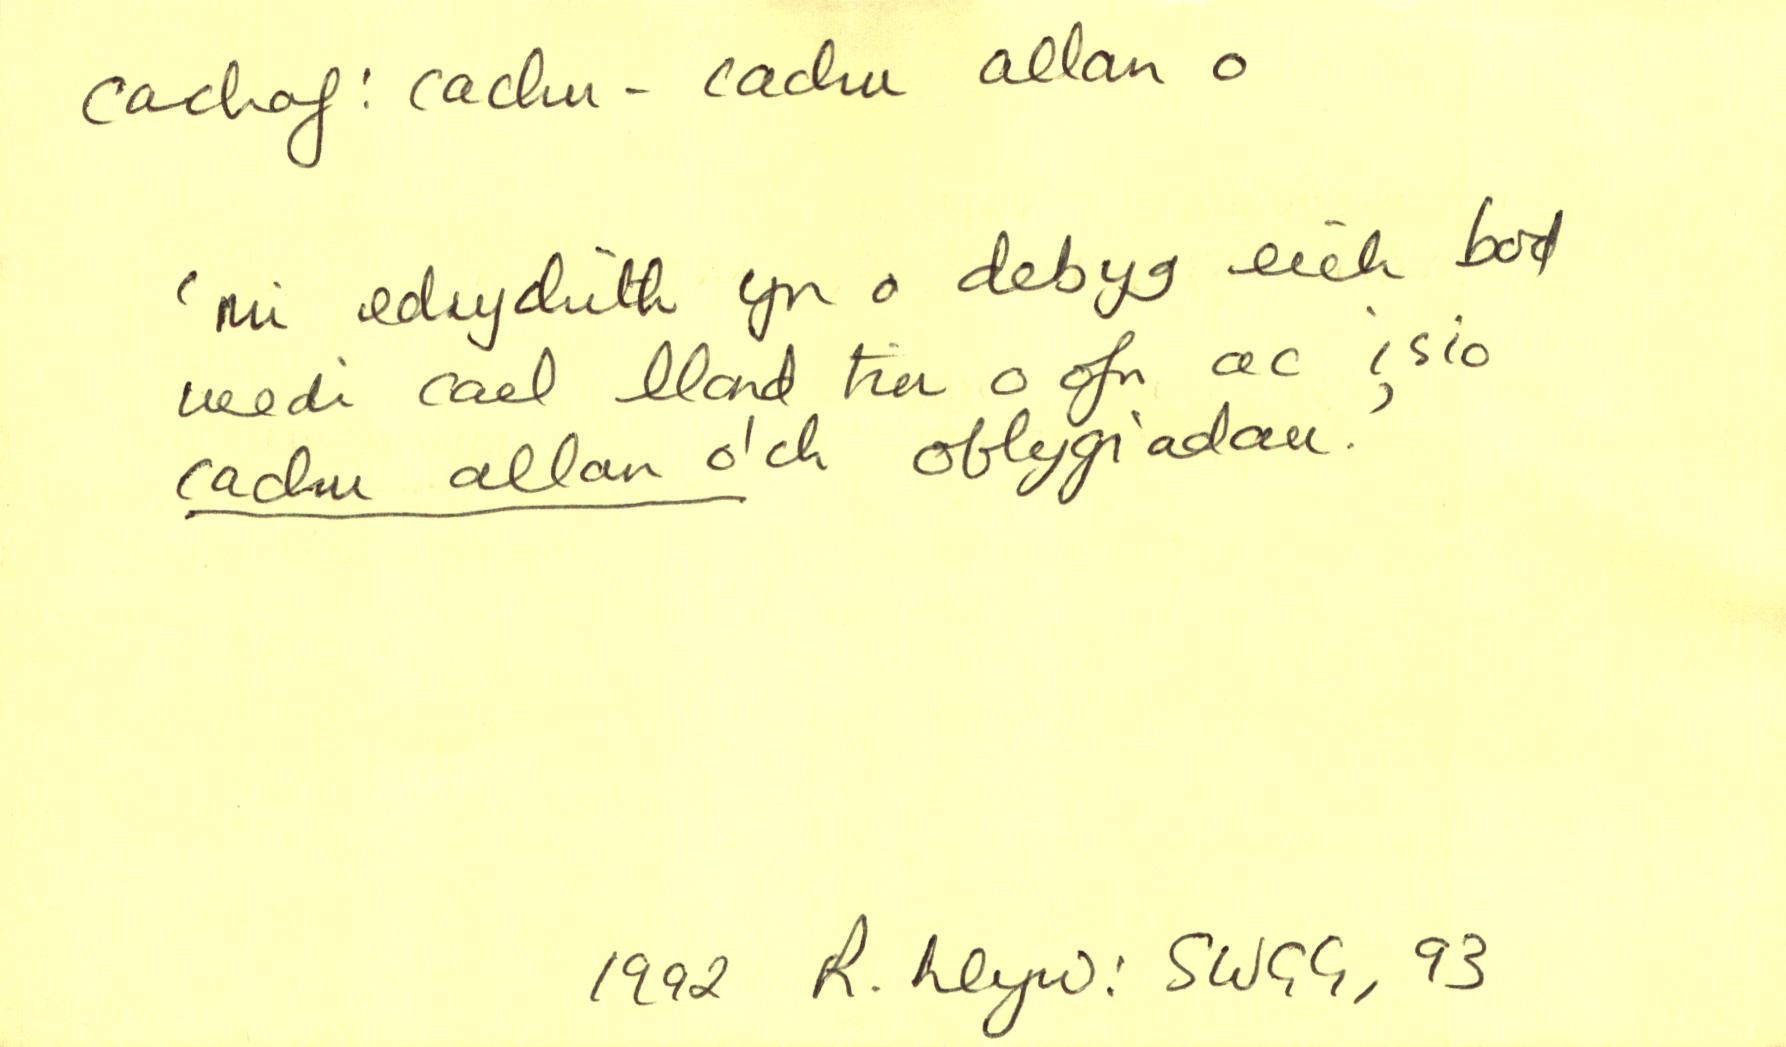 cachaf: cachu - cachu allan o
'mi edrychith yn o debyg eich bod
wedi cael llond tin o ofn ac isio
cachu allan o'ch oblygiadau.'
1992 R. Llwyd: SWGG, 93